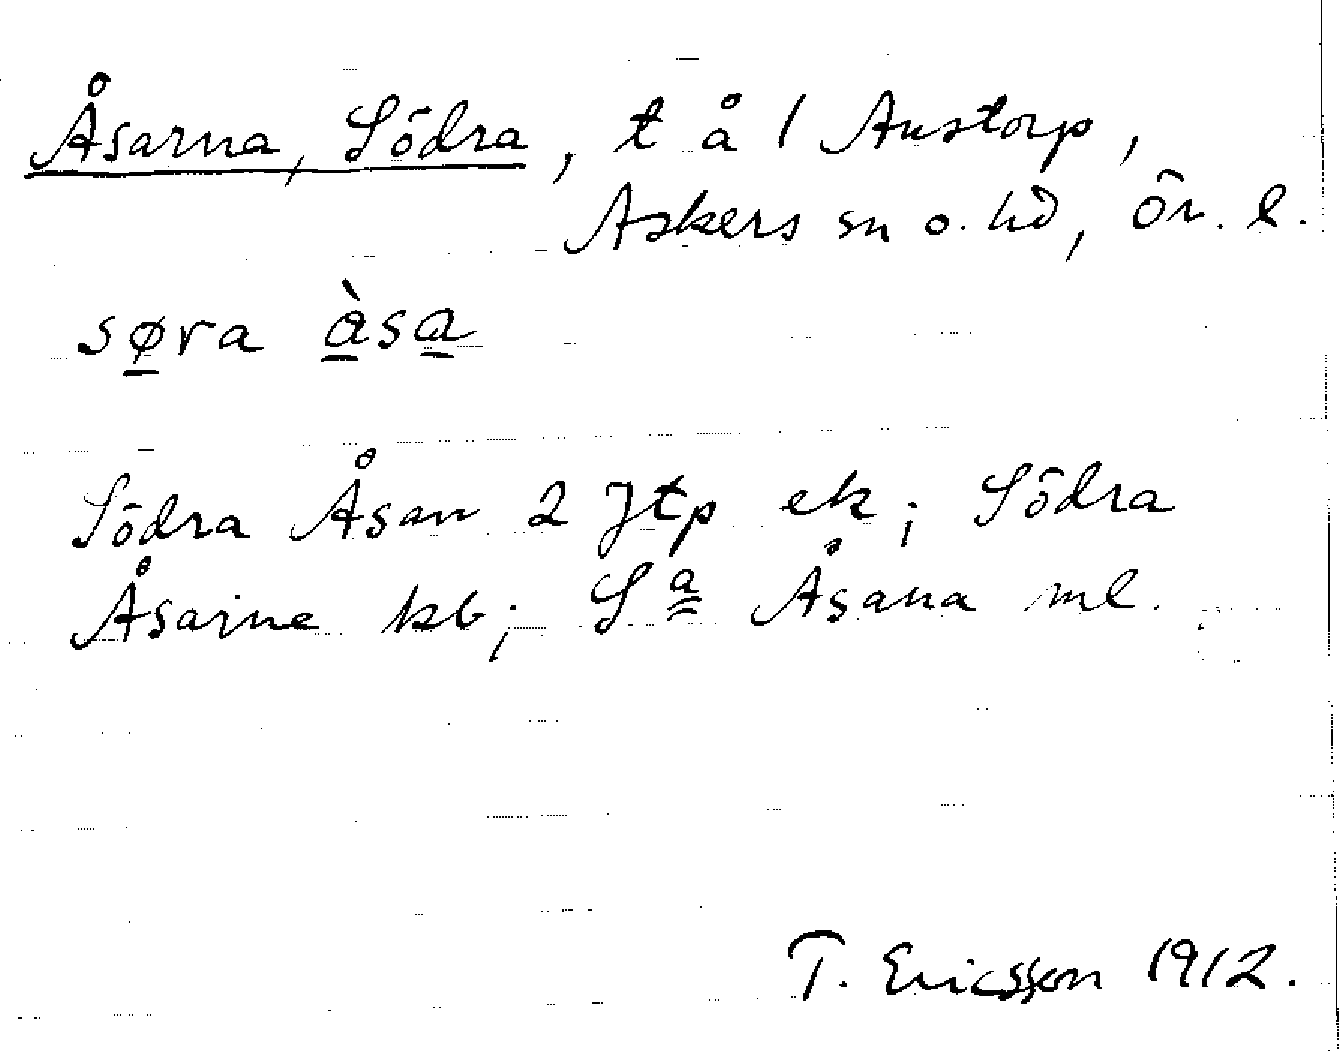 Åsarna, Södra, t å 1 Austorp,
Askers sn o. hd, Ör. l.
søra àsa
Södra Åsan 2 Jtp ek; Södra
Åsarne kb; S a Åsana ml.
T. Ericsson 1912.